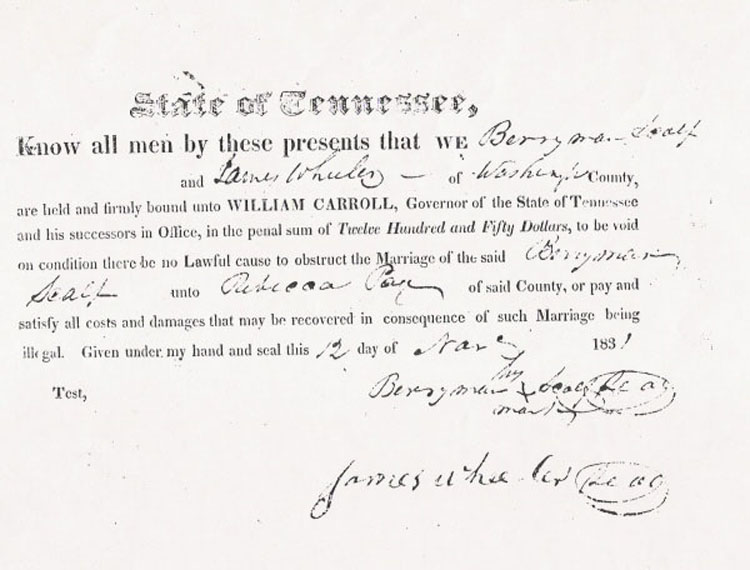 State of Tennessee,
Know all men by these presents that WE Berryman Scalf
and James Wheeler of Washington County,
are held and firmly bound unto WILLIAM CARROLL, Governor of the State of Tennessee
and his successors in Office, in the penal sum of Twelve Hundred and Fifty Dollars, to be void
on condition there be no Lawful cause to obstruct the Marriage of the said Berryman
Scalf unto Rebecca of said County, or pay and
satisfy all costs and damages that may be recovered in consequence of such Marriage being
illegal. Given under my hand and seal this 12 day of 1831
his
Test, Berryman X Scalf Seal
mark
James Wheeler Seal